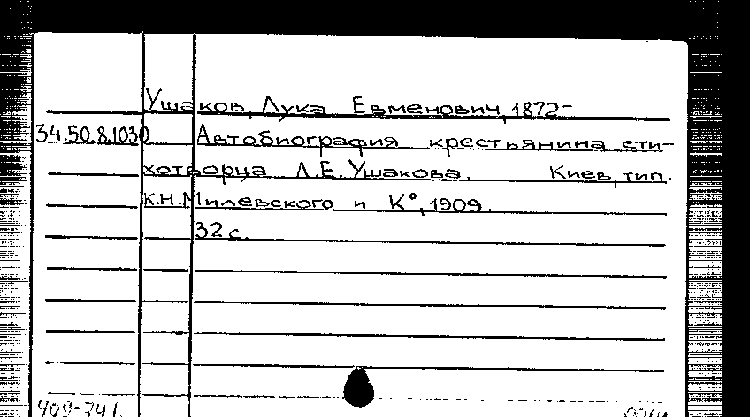 Ушаков, Лука Евменович, 1872-
34.50.8.1030 Автобиография крестьянина сти-
хотворца Л.Е. Ушакова. Киев, тип.
К.Н. Милевского и К°, 1909.
32 с.
409-741.